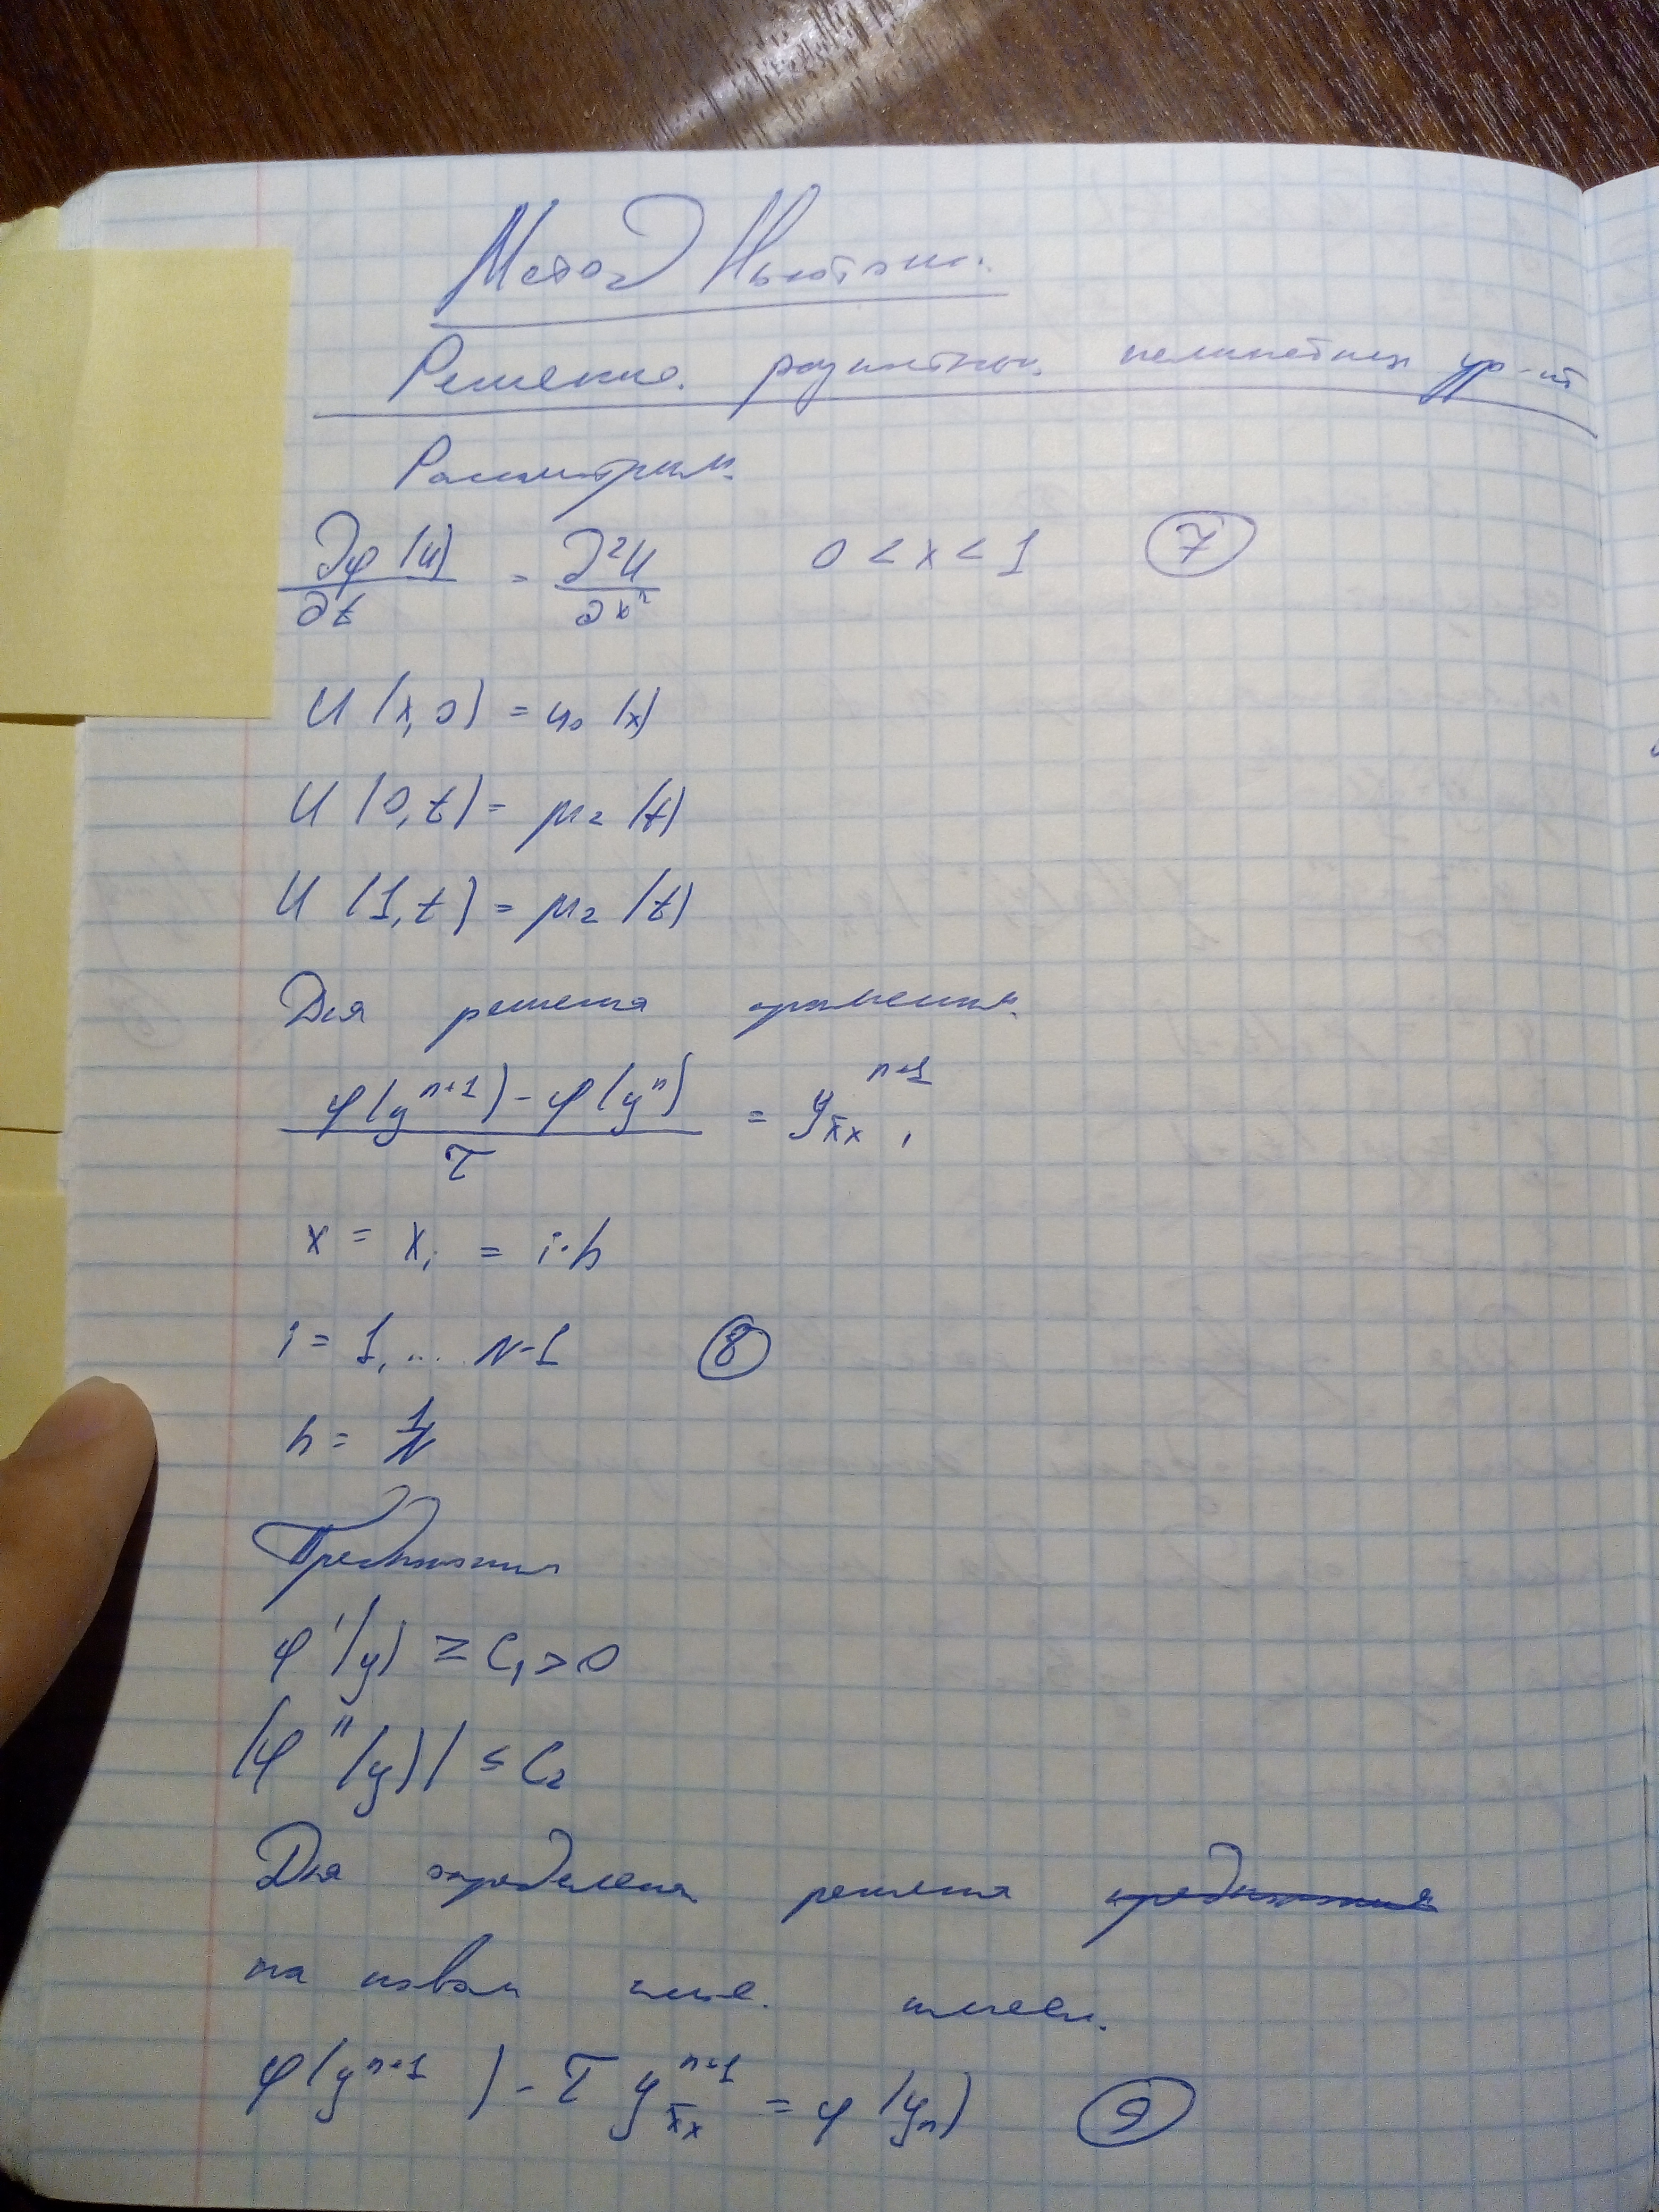 Метод Ньютона.
Решение. разностных нелинейных ур-ий
Рассмотрим.
∂φ(u)/∂t = ∂²u/∂x² 0 < x < 1 (7)
u(x,0) = u₀(x)
u(0,t) = μ₂(t)
u(1,t) = μ₂(t)
Для решения уравнения.
(φ(yⁿ⁺¹) - φ(yⁿ))/τ = y_{x̄x}ⁿ⁺¹,
x = xᵢ = i·h
i = 1, ... N-1 (8)
h = 1/N
φ'(y) ≥ C₁ > 0
|φ''(y)| ≤ C₂
Для определения решения
на новом слое. имеем.
φ(yⁿ⁺¹) - τ y_{x̄x}ⁿ⁺¹ = φ(yₙ) (9)